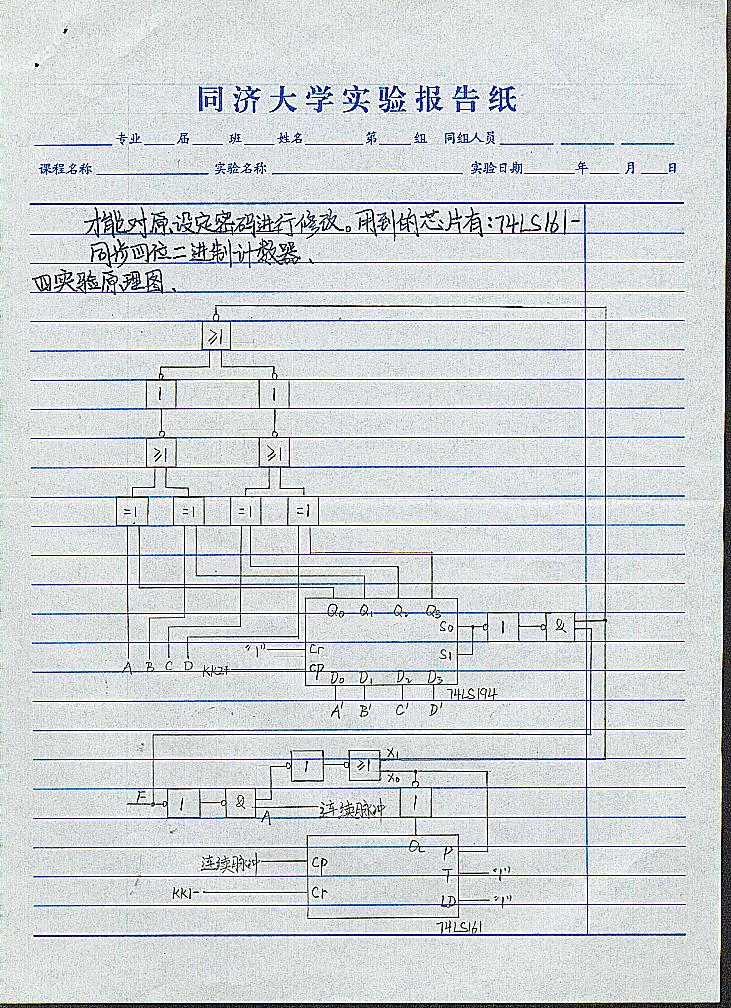 同济大学实验报告纸
专业 届 班 姓名 第 组 同组人员
课程名称 实验名称 实验日期 年 月 日
才能对原设定密码进行修改。用到的芯片有:74LS161-
同步四位二进制计数器、
四实验原理图、
≥1
1 1
≥1 ≥1
=1 =1 =1 =1
Q0 Q1 Q2 Q3
S0 1 &
"1" Cr S1
A B C D KK2 CP D0 D1 D2 D3
74LS194
A' B' C' D'
1 ≥1 X1
X0
F 1 & 1
A 连续脉冲
QL P
连续脉冲 CP
T "1"
KK1 Cr
LD "1"
74LS161